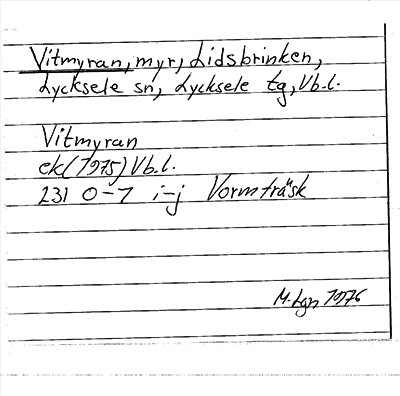 Vitmyran, myr, Lidsbrinken,
Lycksele sn, Lycksele tg, Vb.l.
Vitmyran
ek (1975) Vb.l.
231 0-1 i-j Vormträsk
M. Lgn 1976